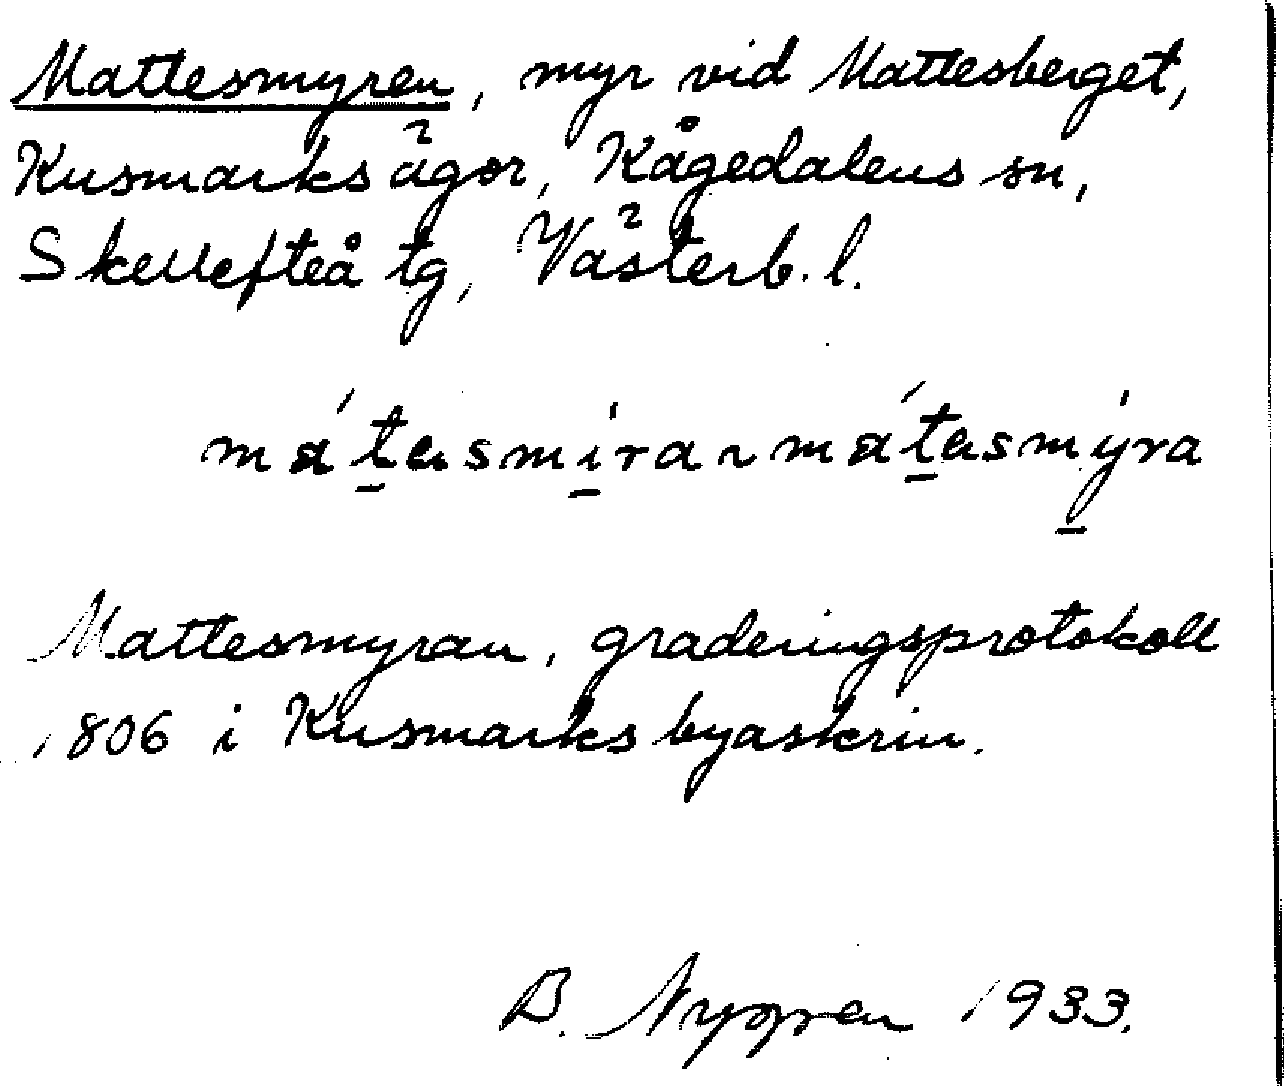 Mattesmyren, myr vid Mattesberget,
Kusmarks ägor, Kågedalens sn,
Skellefteå tg, Västerb. l.
mátasmi̱ra ~ mátasmy̱ra
Mattesmyran, graderingsprotokoll
1806 i Kusmarks byaskrin.
B. Nygren 1933.